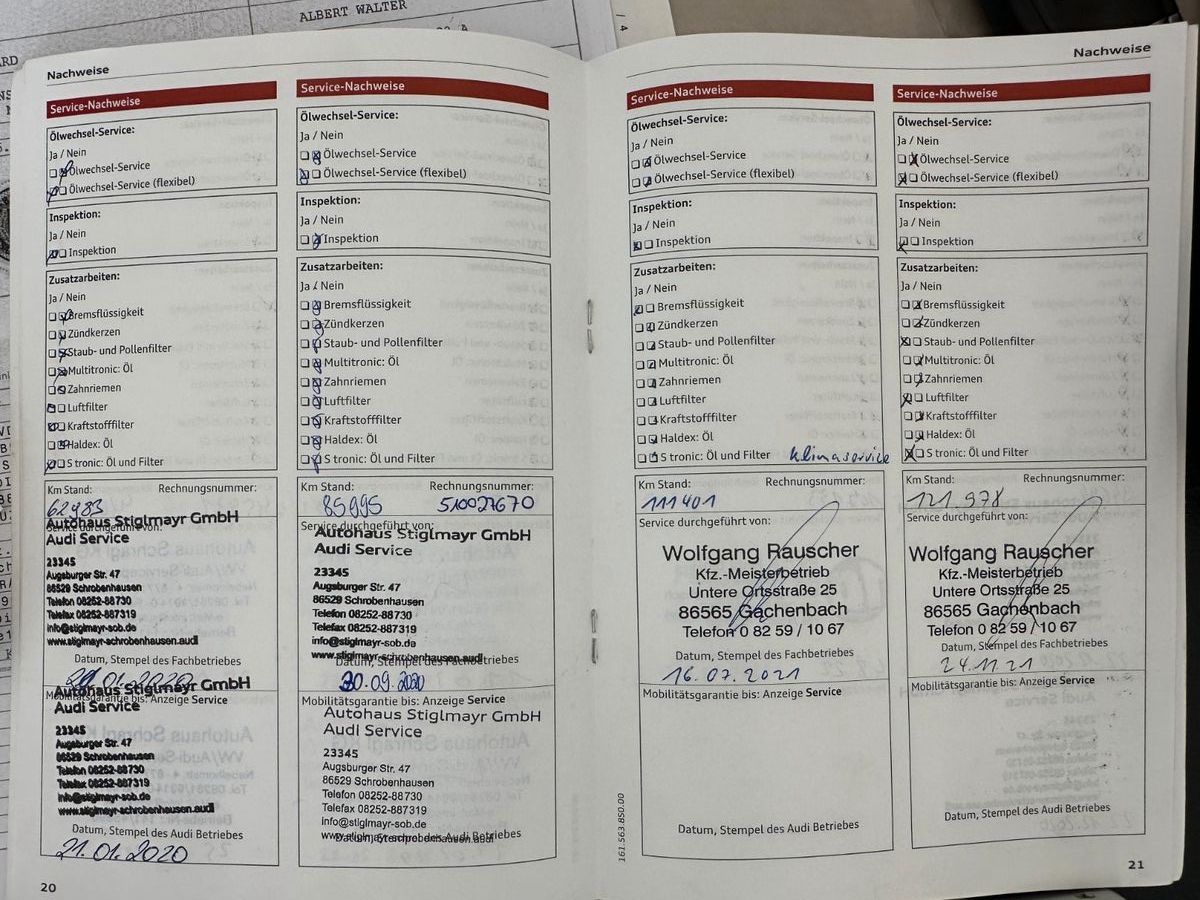 ALBERT WALTER
Nachweise
Service-Nachweise
Ölwechsel-Service:
Ja / Nein
Ölwechsel-Service
Ölwechsel-Service (flexibel)
Inspektion:
Ja / Nein
Inspektion
Zusatzarbeiten:
Ja / Nein
Bremsflüssigkeit
Zündkerzen
Staub- und Pollenfilter
Multitronic: Öl
Zahnriemen
Luftfilter
Kraftstofffilter
Haldex: Öl
S tronic: Öl und Filter
Km Stand: Rechnungsnummer:
62983
Service durchgeführt von:
Autohaus Stiglmayr GmbH
Audi Service
23345
Augsburger Str. 47
86529 Schrobenhausen
Telefon 08252-88730
Telefax 08252-887319
info@stiglmayr-sob.de
www.stiglmayr-schrobenhausen.audi
Datum, Stempel des Fachbetriebes
21.01.2020
Mobilitätsgarantie bis: Anzeige Service
Autohaus Stiglmayr GmbH
Audi Service
23345
Augsburger Str. 47
86529 Schrobenhausen
Telefon 08252-88730
Telefax 08252-887319
info@stiglmayr-sob.de
www.stiglmayr-schrobenhausen.audi
Datum, Stempel des Audi Betriebes
21.01.2020
20
Service-Nachweise
Ölwechsel-Service:
Ja / Nein
Ölwechsel-Service
Ölwechsel-Service (flexibel)
Inspektion:
Ja / Nein
Inspektion
Zusatzarbeiten:
Ja / Nein
Bremsflüssigkeit
Zündkerzen
Staub- und Pollenfilter
Multitronic: Öl
Zahnriemen
Luftfilter
Kraftstofffilter
Haldex: Öl
S tronic: Öl und Filter
Km Stand: Rechnungsnummer:
85995 510027670
Service durchgeführt von:
Autohaus Stiglmayr GmbH
Audi Service
23345
Augsburger Str. 47
86529 Schrobenhausen
Telefon 08252-88730
Telefax 08252-887319
info@stiglmayr-sob.de
www.stiglmayr-schrobenhausen.audi
Datum, Stempel des Fachbetriebes
30.09.2020
Mobilitätsgarantie bis: Anzeige Service
Autohaus Stiglmayr GmbH
Audi Service
23345
Augsburger Str. 47
86529 Schrobenhausen
Telefon 08252-88730
Telefax 08252-887319
info@stiglmayr-sob.de
www.stiglmayr-schrobenhausen.audi
Datum, Stempel des Audi Betriebes
Nachweise
Service-Nachweise
Ölwechsel-Service:
Ja / Nein
Ölwechsel-Service
Ölwechsel-Service (flexibel)
Inspektion:
Ja / Nein
Inspektion
Zusatzarbeiten:
Ja / Nein
Bremsflüssigkeit
Zündkerzen
Staub- und Pollenfilter
Multitronic: Öl
Zahnriemen
Luftfilter
Kraftstofffilter
Haldex: Öl
S tronic: Öl und Filter Klimaservice
Km Stand: Rechnungsnummer:
111401
Service durchgeführt von:
Wolfgang Rauscher
Kfz.-Meisterbetrieb
Untere Ortsstraße 25
86565 Gachenbach
Telefon 0 82 59 / 10 67
Datum, Stempel des Fachbetriebes
16.07.2021
Mobilitätsgarantie bis: Anzeige Service
Datum, Stempel des Audi Betriebes
161.563.850.00
Service-Nachweise
Ölwechsel-Service:
Ja / Nein
Ölwechsel-Service
Ölwechsel-Service (flexibel)
Inspektion:
Ja / Nein
Inspektion
Zusatzarbeiten:
Ja / Nein
Bremsflüssigkeit
Zündkerzen
Staub- und Pollenfilter
Multitronic: Öl
Zahnriemen
Luftfilter
Kraftstofffilter
Haldex: Öl
S tronic: Öl und Filter
Km Stand: Rechnungsnummer:
121.978
Service durchgeführt von:
Wolfgang Rauscher
Kfz.-Meisterbetrieb
Untere Ortsstraße 25
86565 Gachenbach
Telefon 0 82 59 / 10 67
Datum, Stempel des Fachbetriebes
24.11.21
Mobilitätsgarantie bis: Anzeige Service
Datum, Stempel des Audi Betriebes
21